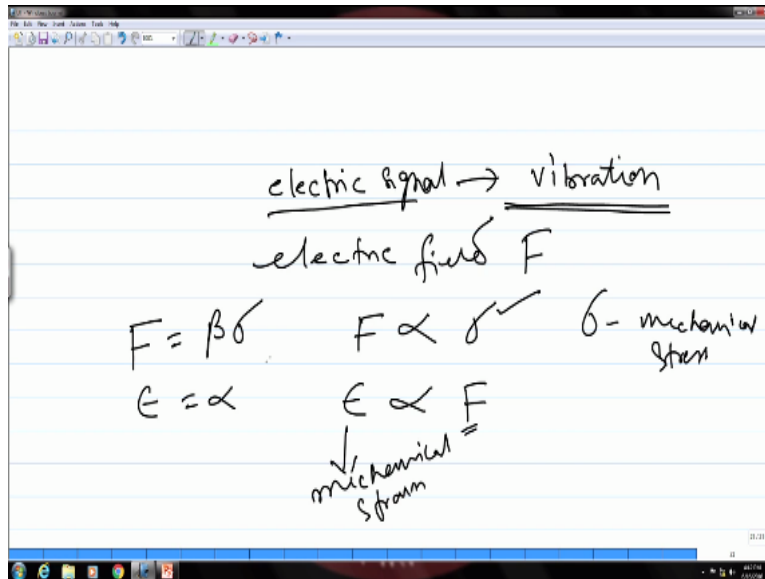 File Edit View Insert Actions Tools Help
electric signal → vibration
electric field F
F = βσ F ∝ σ ✓ σ - mechanical stress
ϵ = α ϵ ∝ F
mechanical strain